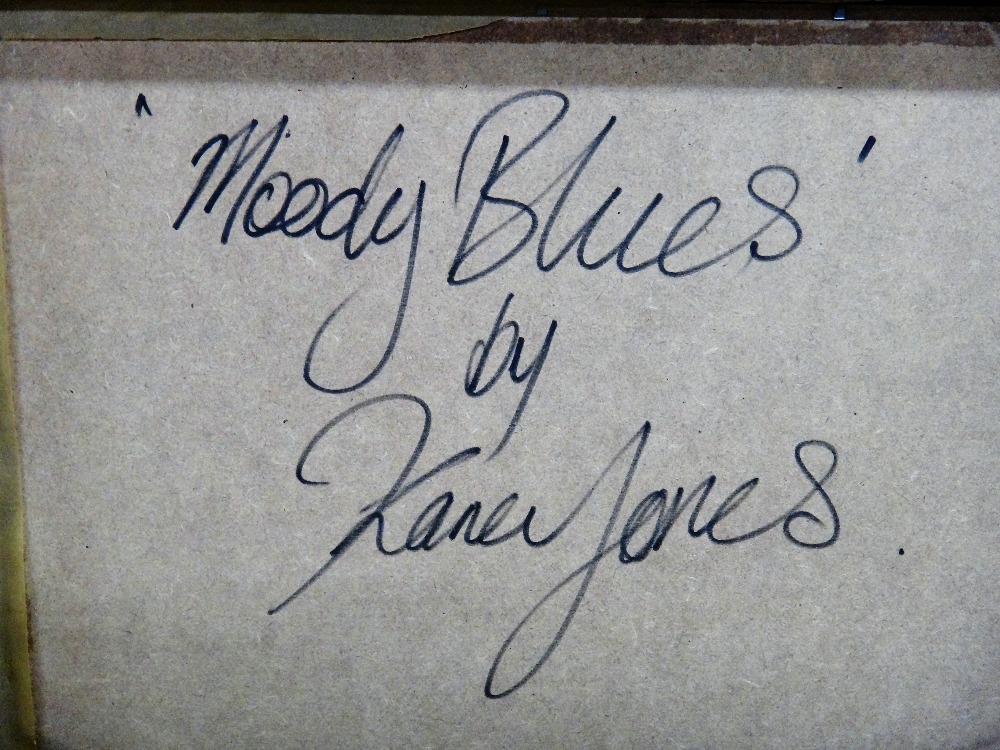 'Moody Blues'
by
Karen Jones.